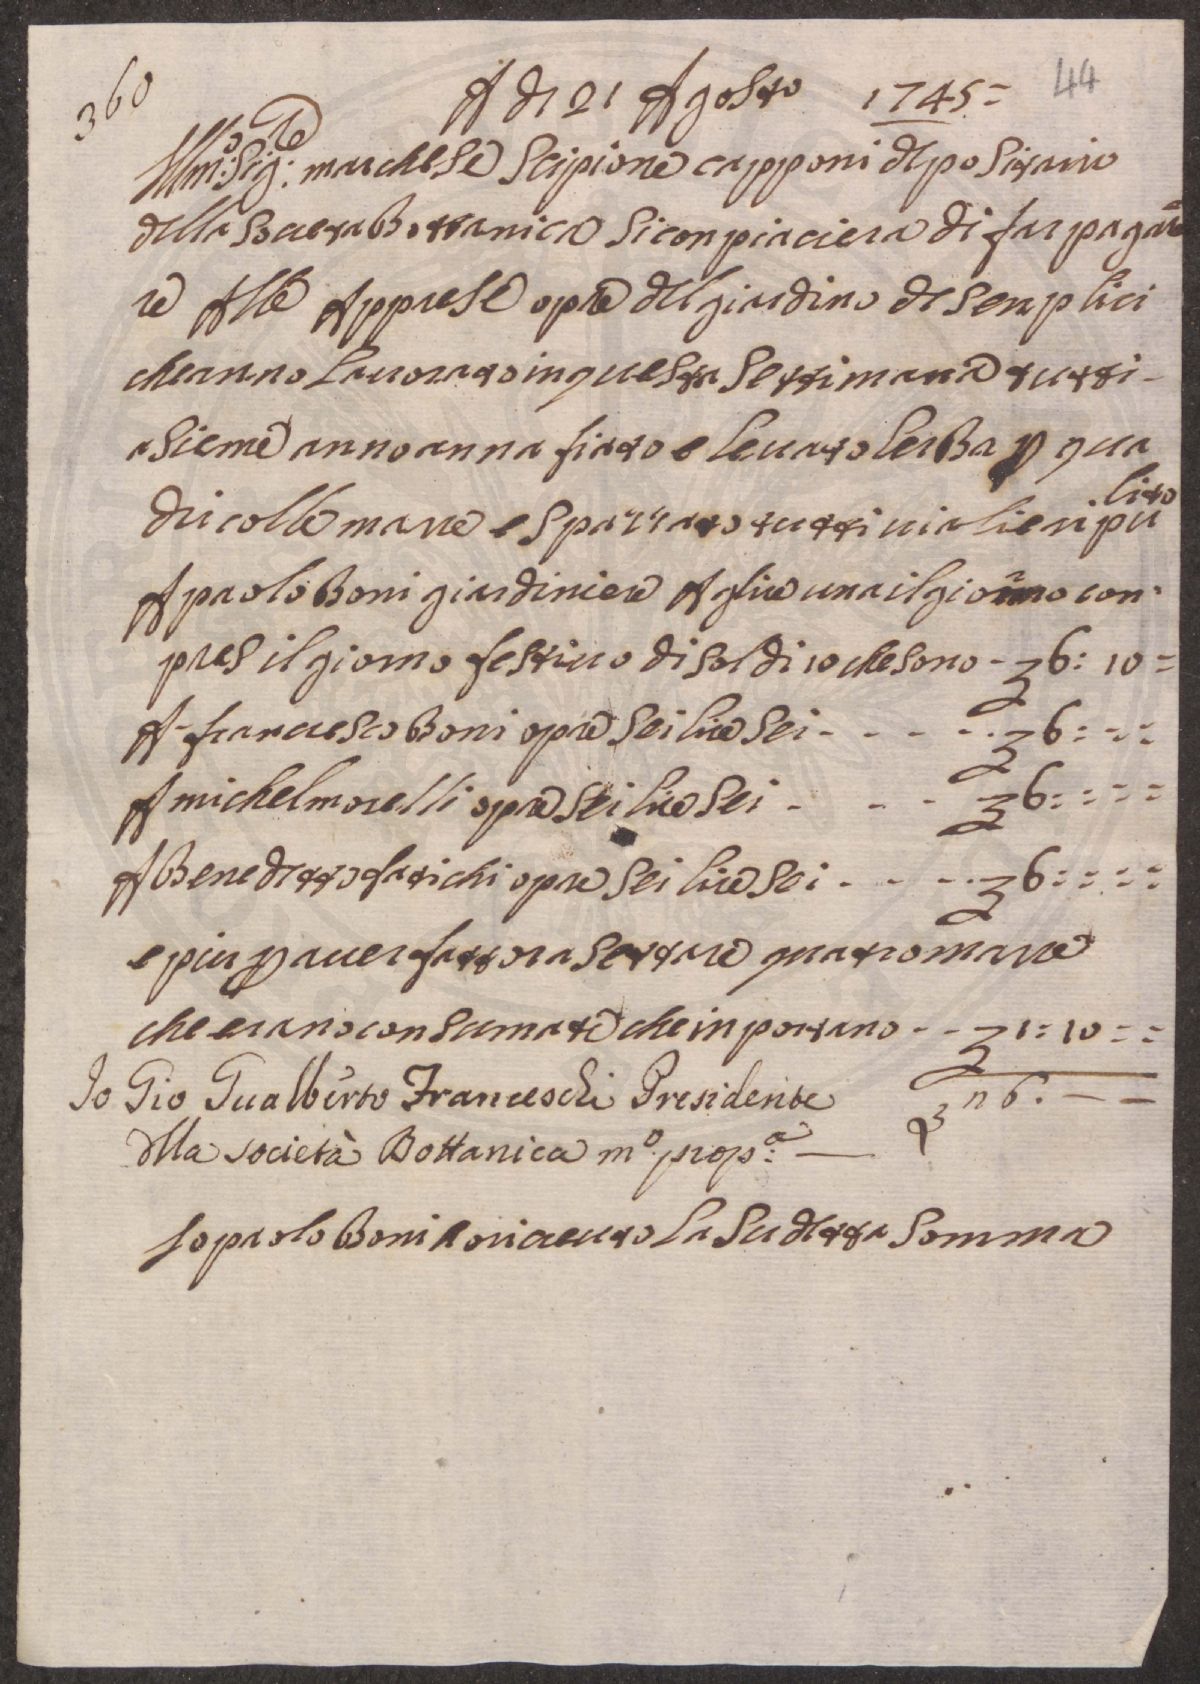 360
44
A dì 21 Agosto 1745=
Illmo: Sigre: marchese Scipione capponi depositario
della Societa Bottanica Si conpiacera di far pagare
re Alle Apprese opre del giardino de Semplici
che anno lavorato in questa Settimana tutti-
asieme anno anna fiato e levato lerBa p qua
dri colle marre e spazzato tutti viali e ri pu
lito
A paolo Boni giardiniere A lire una il giorno con-
pres il giorno festivo di soldi 10 che sono - £ 6: 10 =
A francesco Boni opre Sei lire Sei - - - - - £ 6: = =
A michel morelli opre Sei lire Sei - - - £ 6: = = =
A Benedetto fatichi opre Sei lire Sei - - - - £ 6: = = =
e piu p aver fatto rasettare quatro marre
che erano consumate che inportano - - £ 1: 10 = =
Io Gio Gualberto Franceschi Presidente
£ 26. — —
della società Bottanica mo. propa: —
Io paolo Boni o riceuto La Sudetta Somma